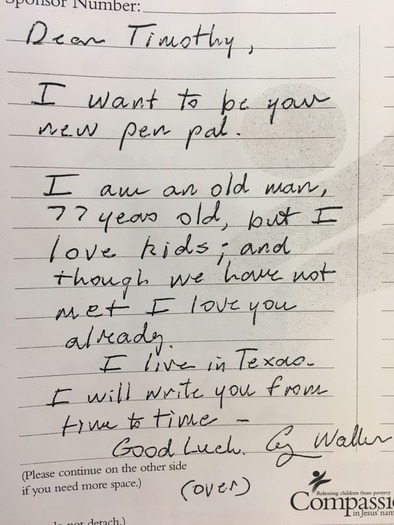 Sponsor Number:
Dear Timothy,
I want to be your
new pen pal.
I am an old man,
77 years old, but I
love kids; and
though we have not
met I love you
already.
I live in Texas.
I will write you from
time to time -
Good Luck. Cy Walker
(Please continue on the other side
if you need more space.)
(over)
Releasing children from poverty
Compassi
in Jesus' nam
do not detach.)